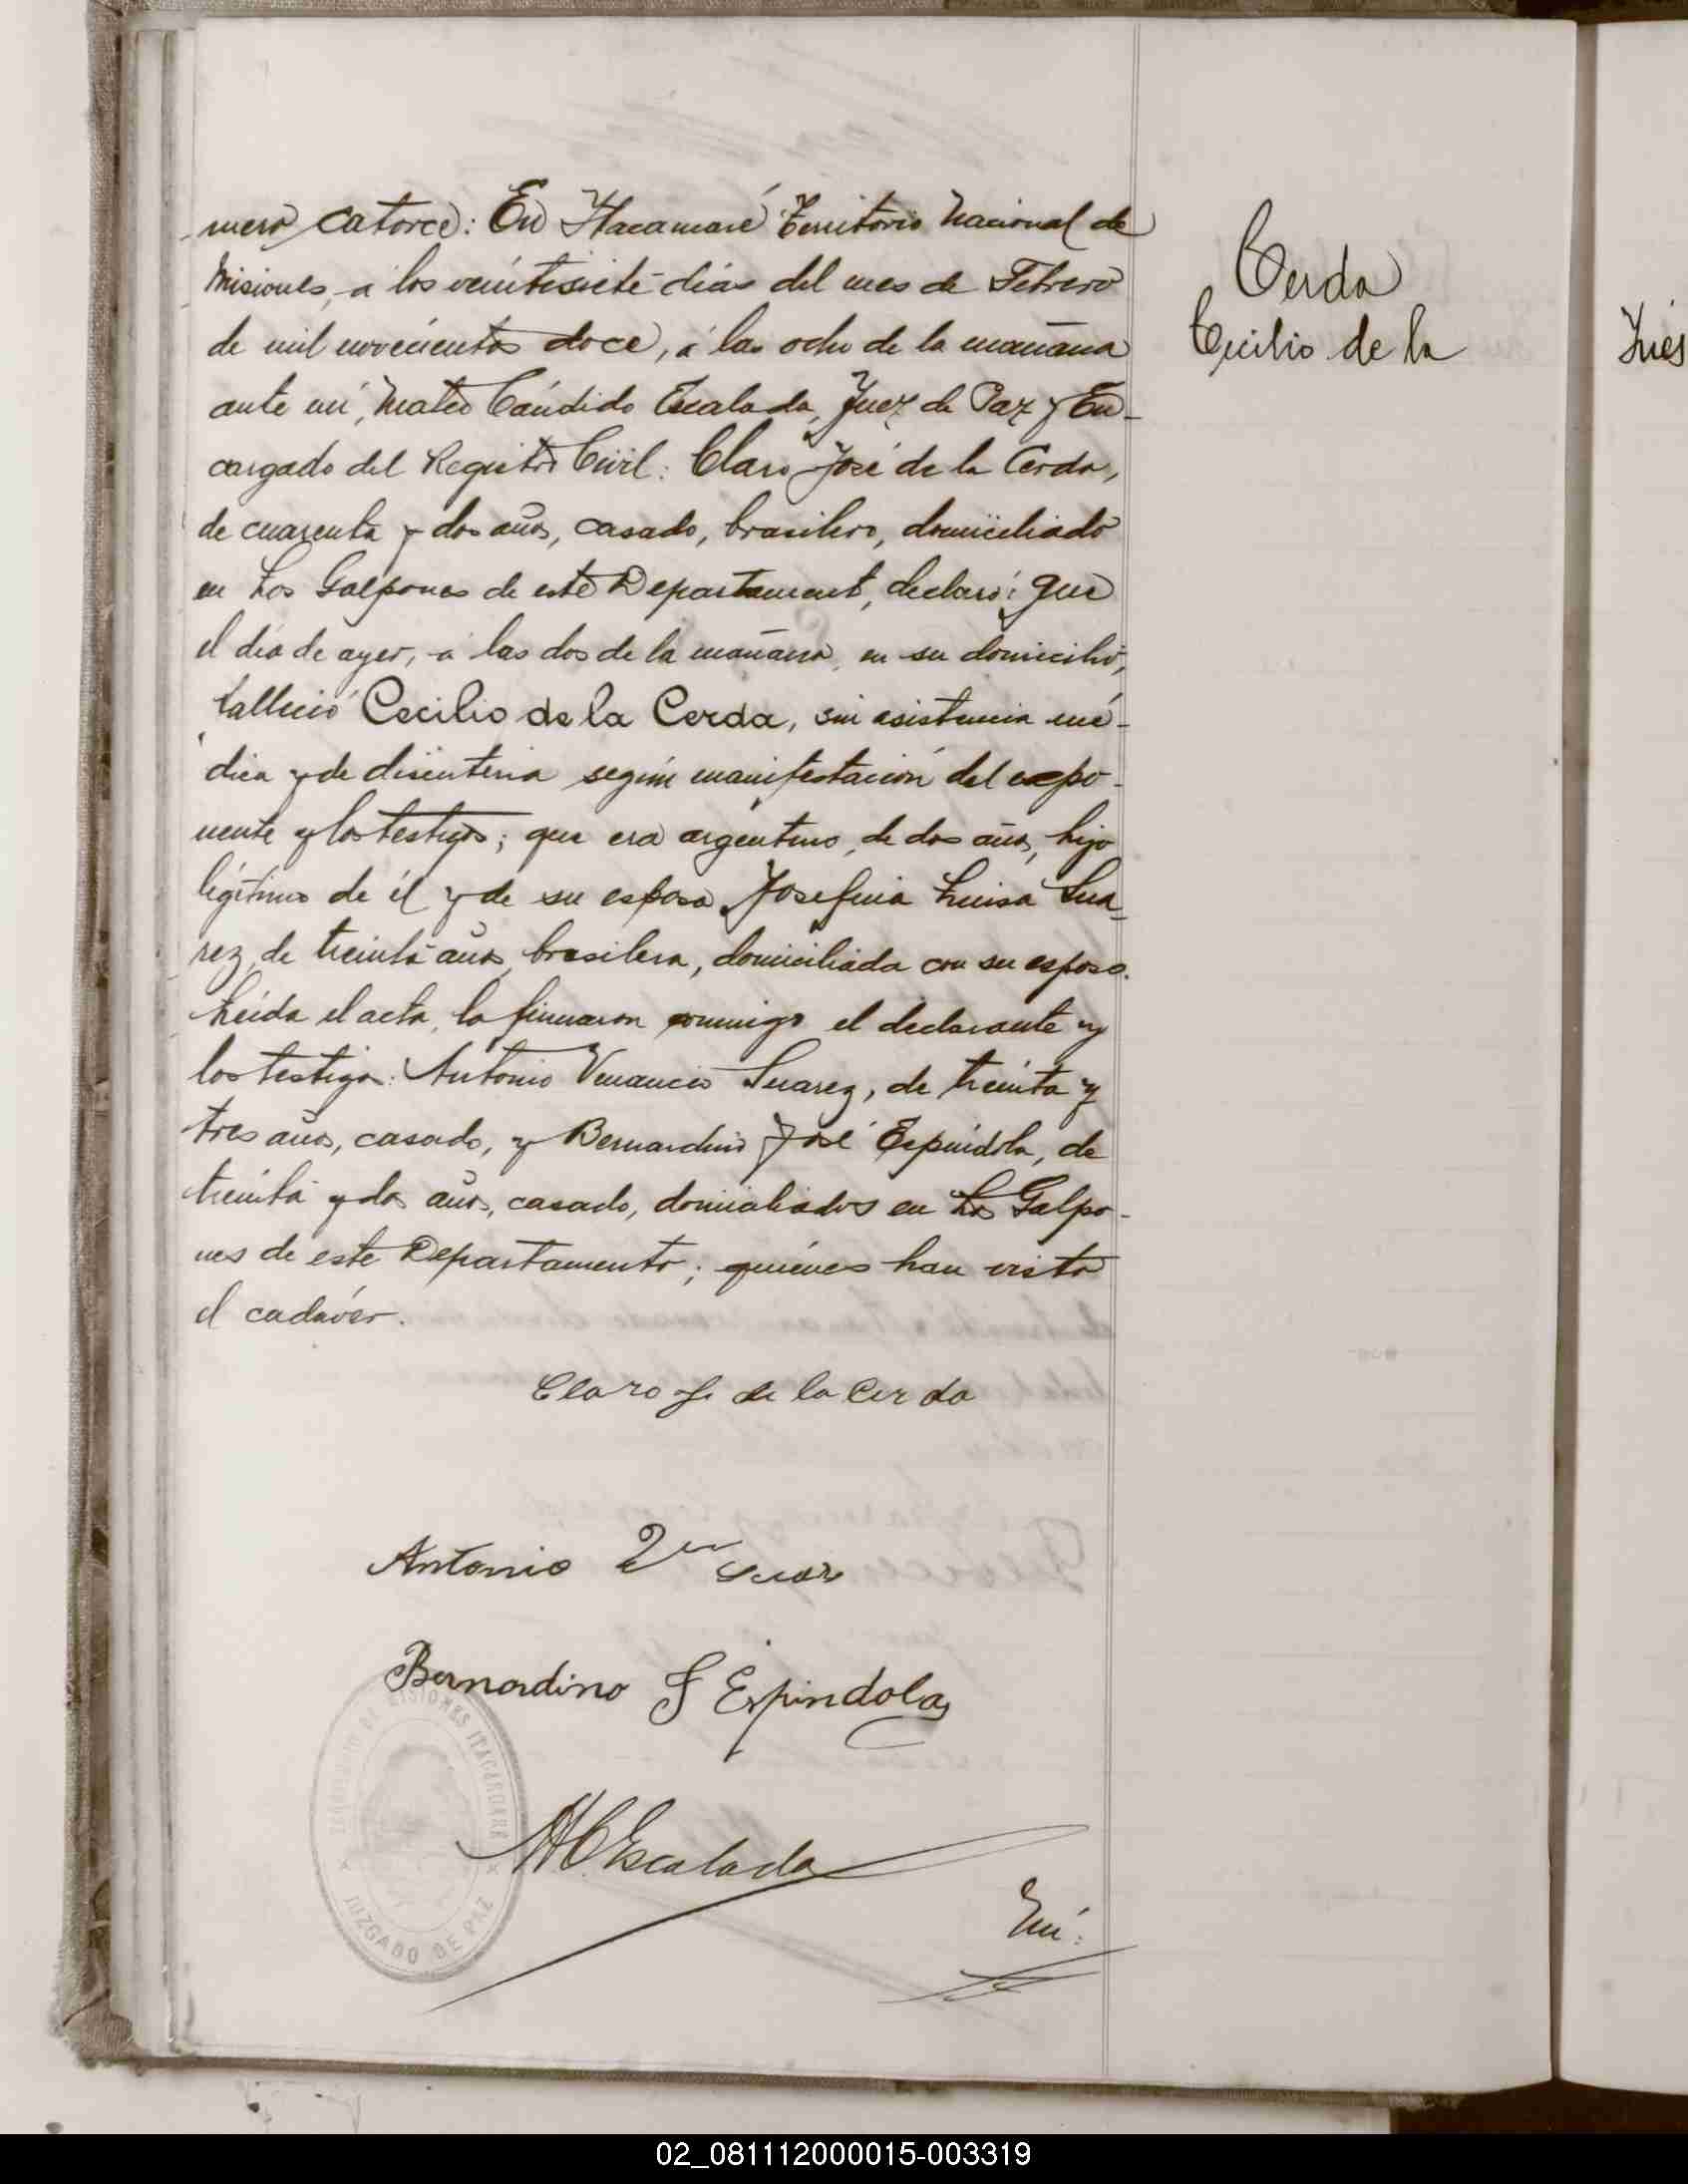 mero catorce: En Itacaruaré Territorio Nacional de
Misiones, á los veintisiete dias del mes de Febrero
de mil novecientos doce, á las ocho de la mañana
ante mi, Mateo Cándido Escalada, Juez de Paz y En-
cargado del Registro Civil: Claro José de la Cerda,
de cuarenta y dos años, casado, brasilero, domiciliado
en Los Galpones de este Departament, declaró: que
el dia de ayer, á las dos de la mañana, en su domicilio,
falleció Cecilio de la Cerda, sin asistencia mé-
dica y de disinteria según manifestación del expo-
nente y los testigos; que era argentino, de dos años, hijo
legítimo de él y de su esposa Josefina Luisa Sua-
rez, de treinta años, brasilera, domiciliada con su esposo.
Leida el acta, la firmaron conmigo el declarante y
los testigos: Antonio Venancio Suarez, de treinta y
tres años, casado, y Bernardino José Espíndola, de
treinta y dos años, casado, domiciliados en Los Galpo-
nes de este Departamento; quiénes han visto
el cadáver.
Claro J. de la Cerda
Antonio
Bernardino J Espindola
MCEscalada
MISIONES ITACARUARÉ
JUZGADO DE PAZ
Nú:
Cerda
Cecilio de la
Inés
02_081112000015-003319